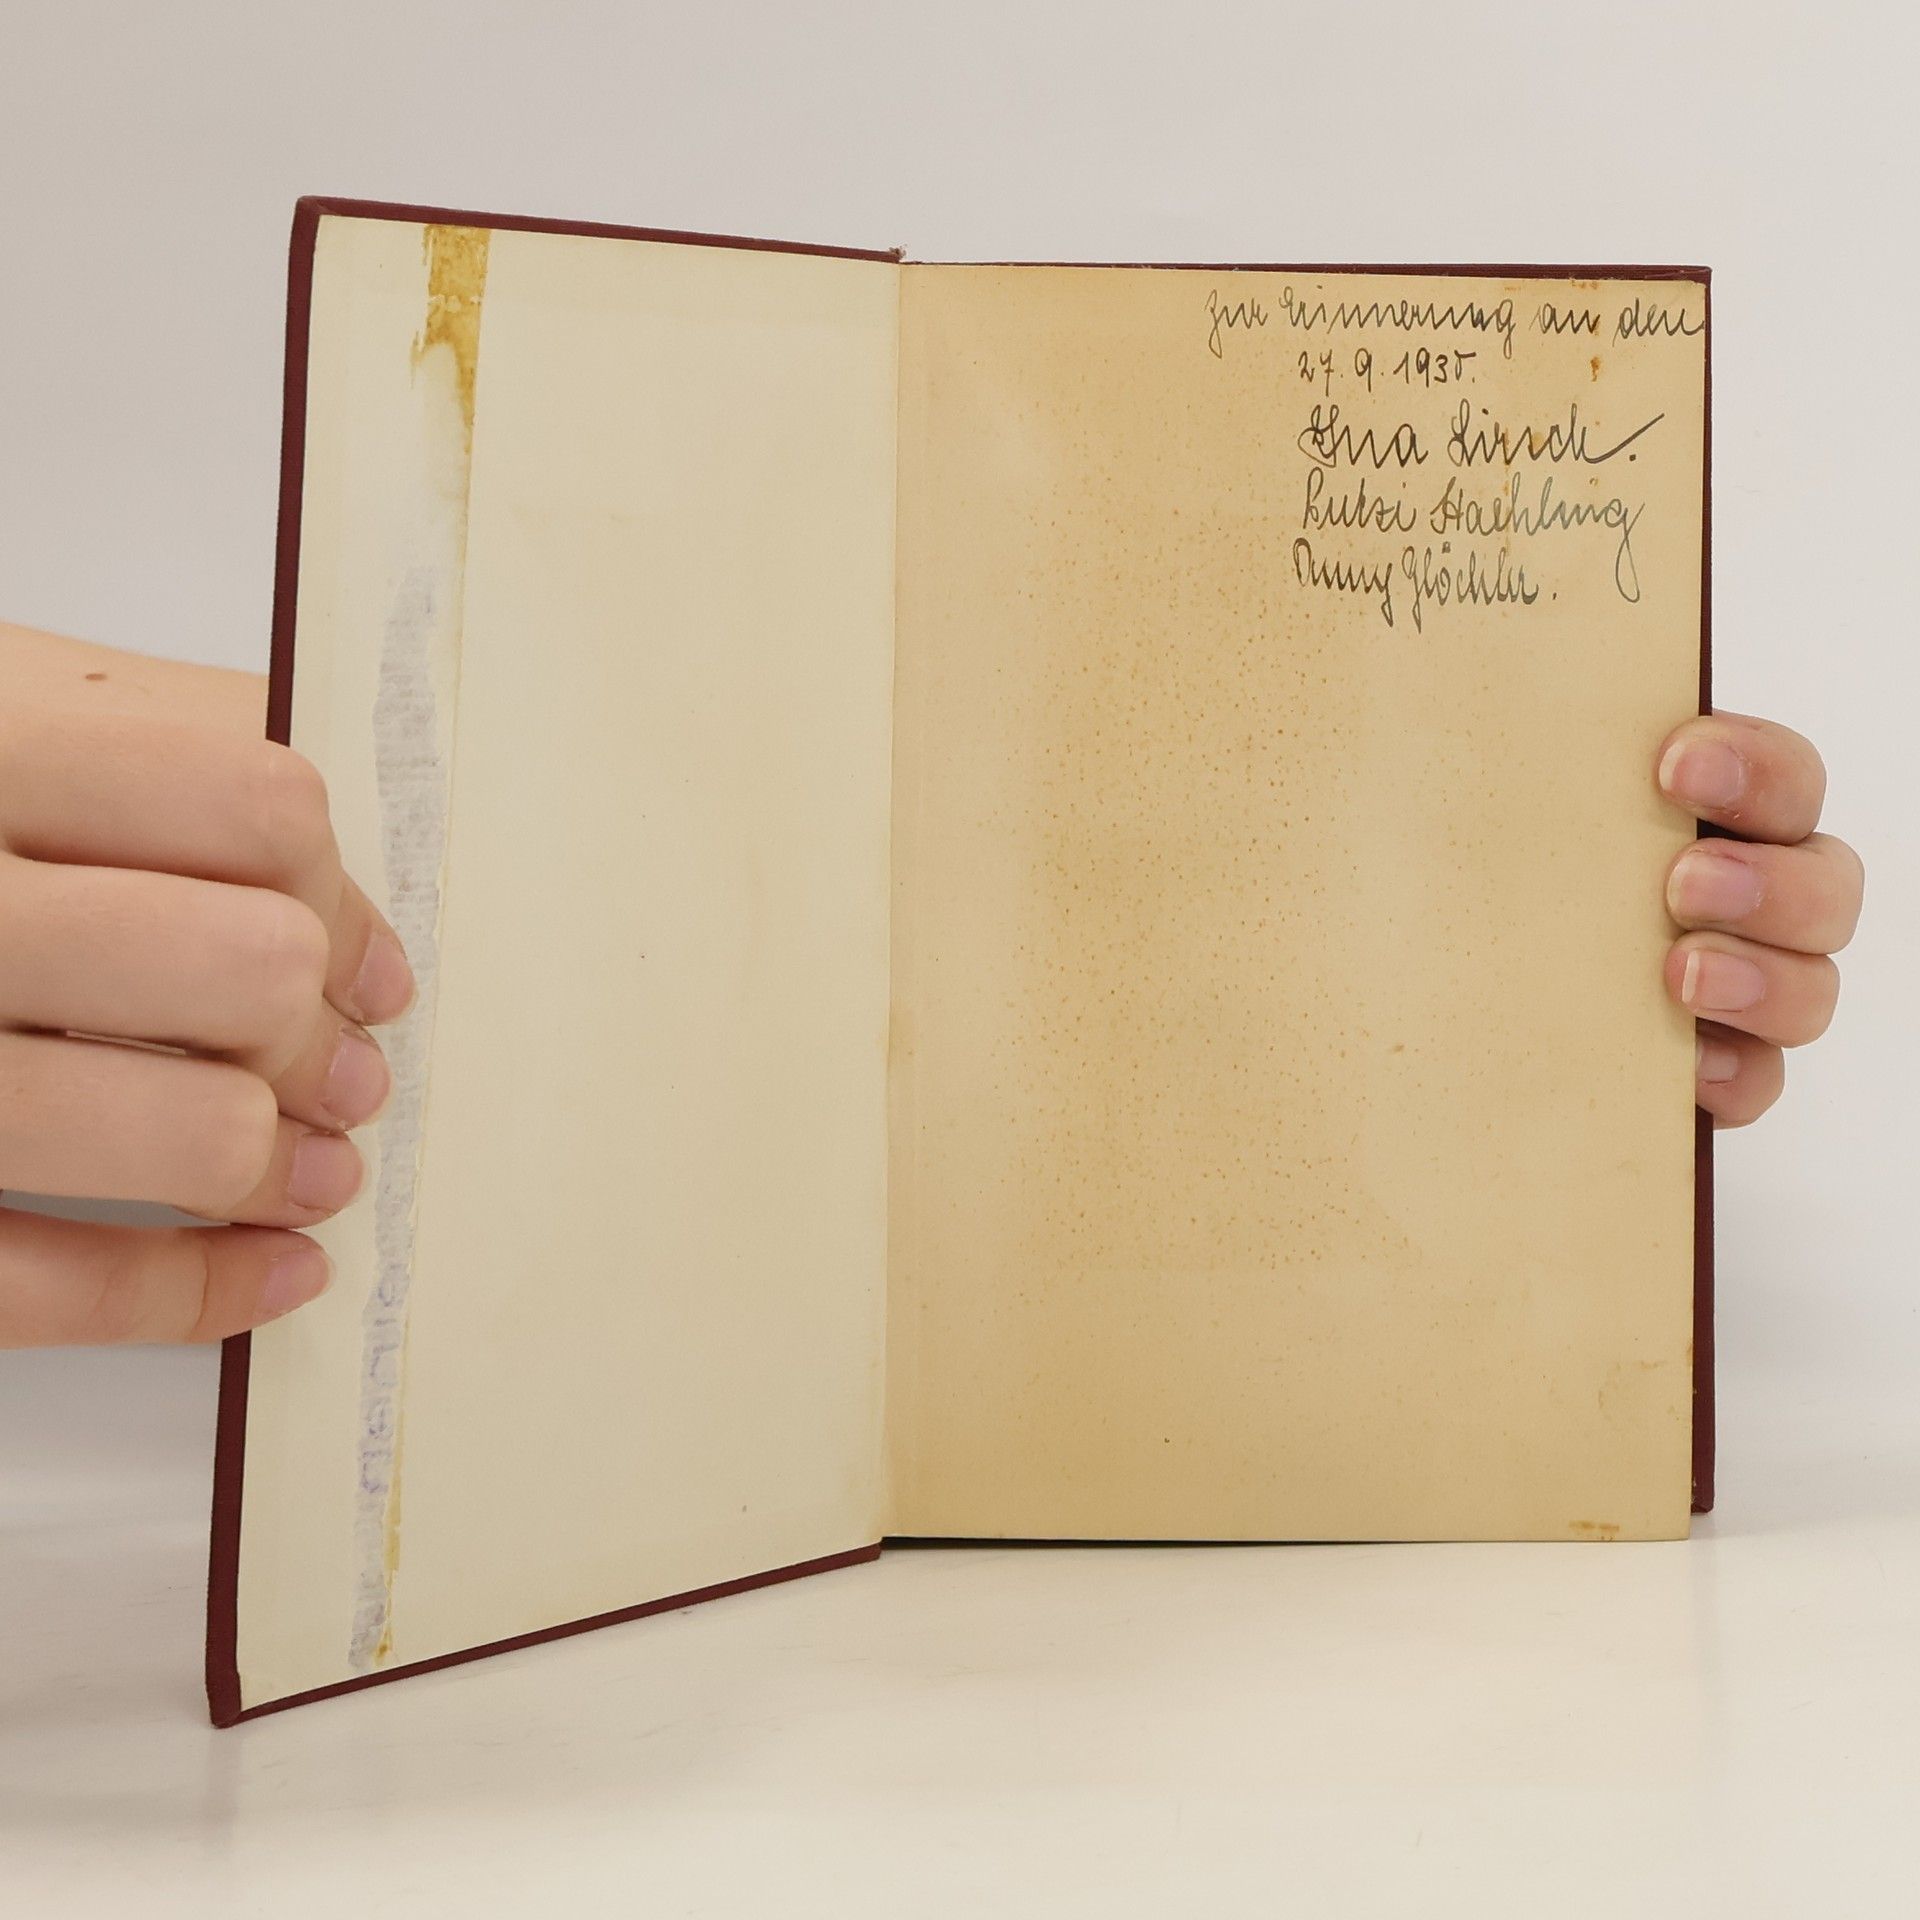 Zur Erinnerung an den
27. 9. 1935.
Ina Lirsch.
Putzi Haehling
Anny Glöckler.